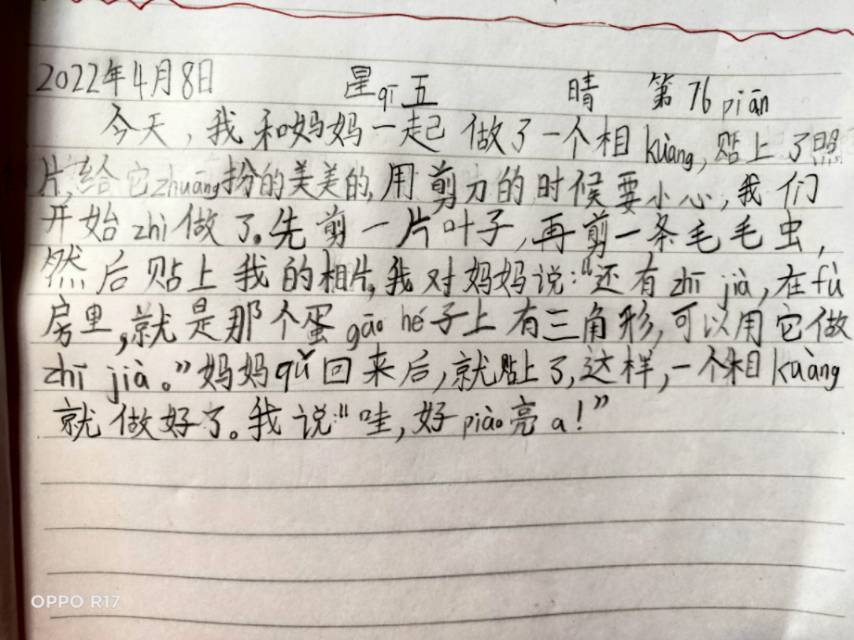 2022年4月8日 星qī五 晴 第76piān
今天，我和妈妈一起做了一个相kuàng，贴上了照
片，给它zhuāng扮的美美的，用剪刀的时候要小心，我们
开始zhì做了。先剪一片叶子，再剪一条毛毛虫，
然后贴上我的相片，我对妈妈说：“还有zhī jià，在fù
房里，就是那个蛋gāo hé子上有三角形，可以用它做
zhī jià。”妈妈qǔ回来后，就贴上了，这样，一个相kuàng
就做好了。我说：“哇，好piào亮a！”
OPPO R17